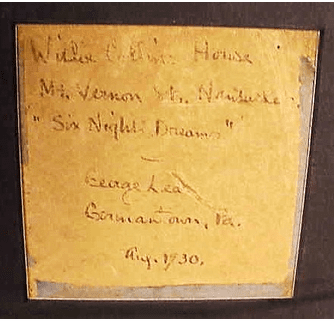 House
Mt. Vernon St., Nantucket
"Six Nights Dreams"
George Lea
Germantown, Pa.
Aug. 1930.